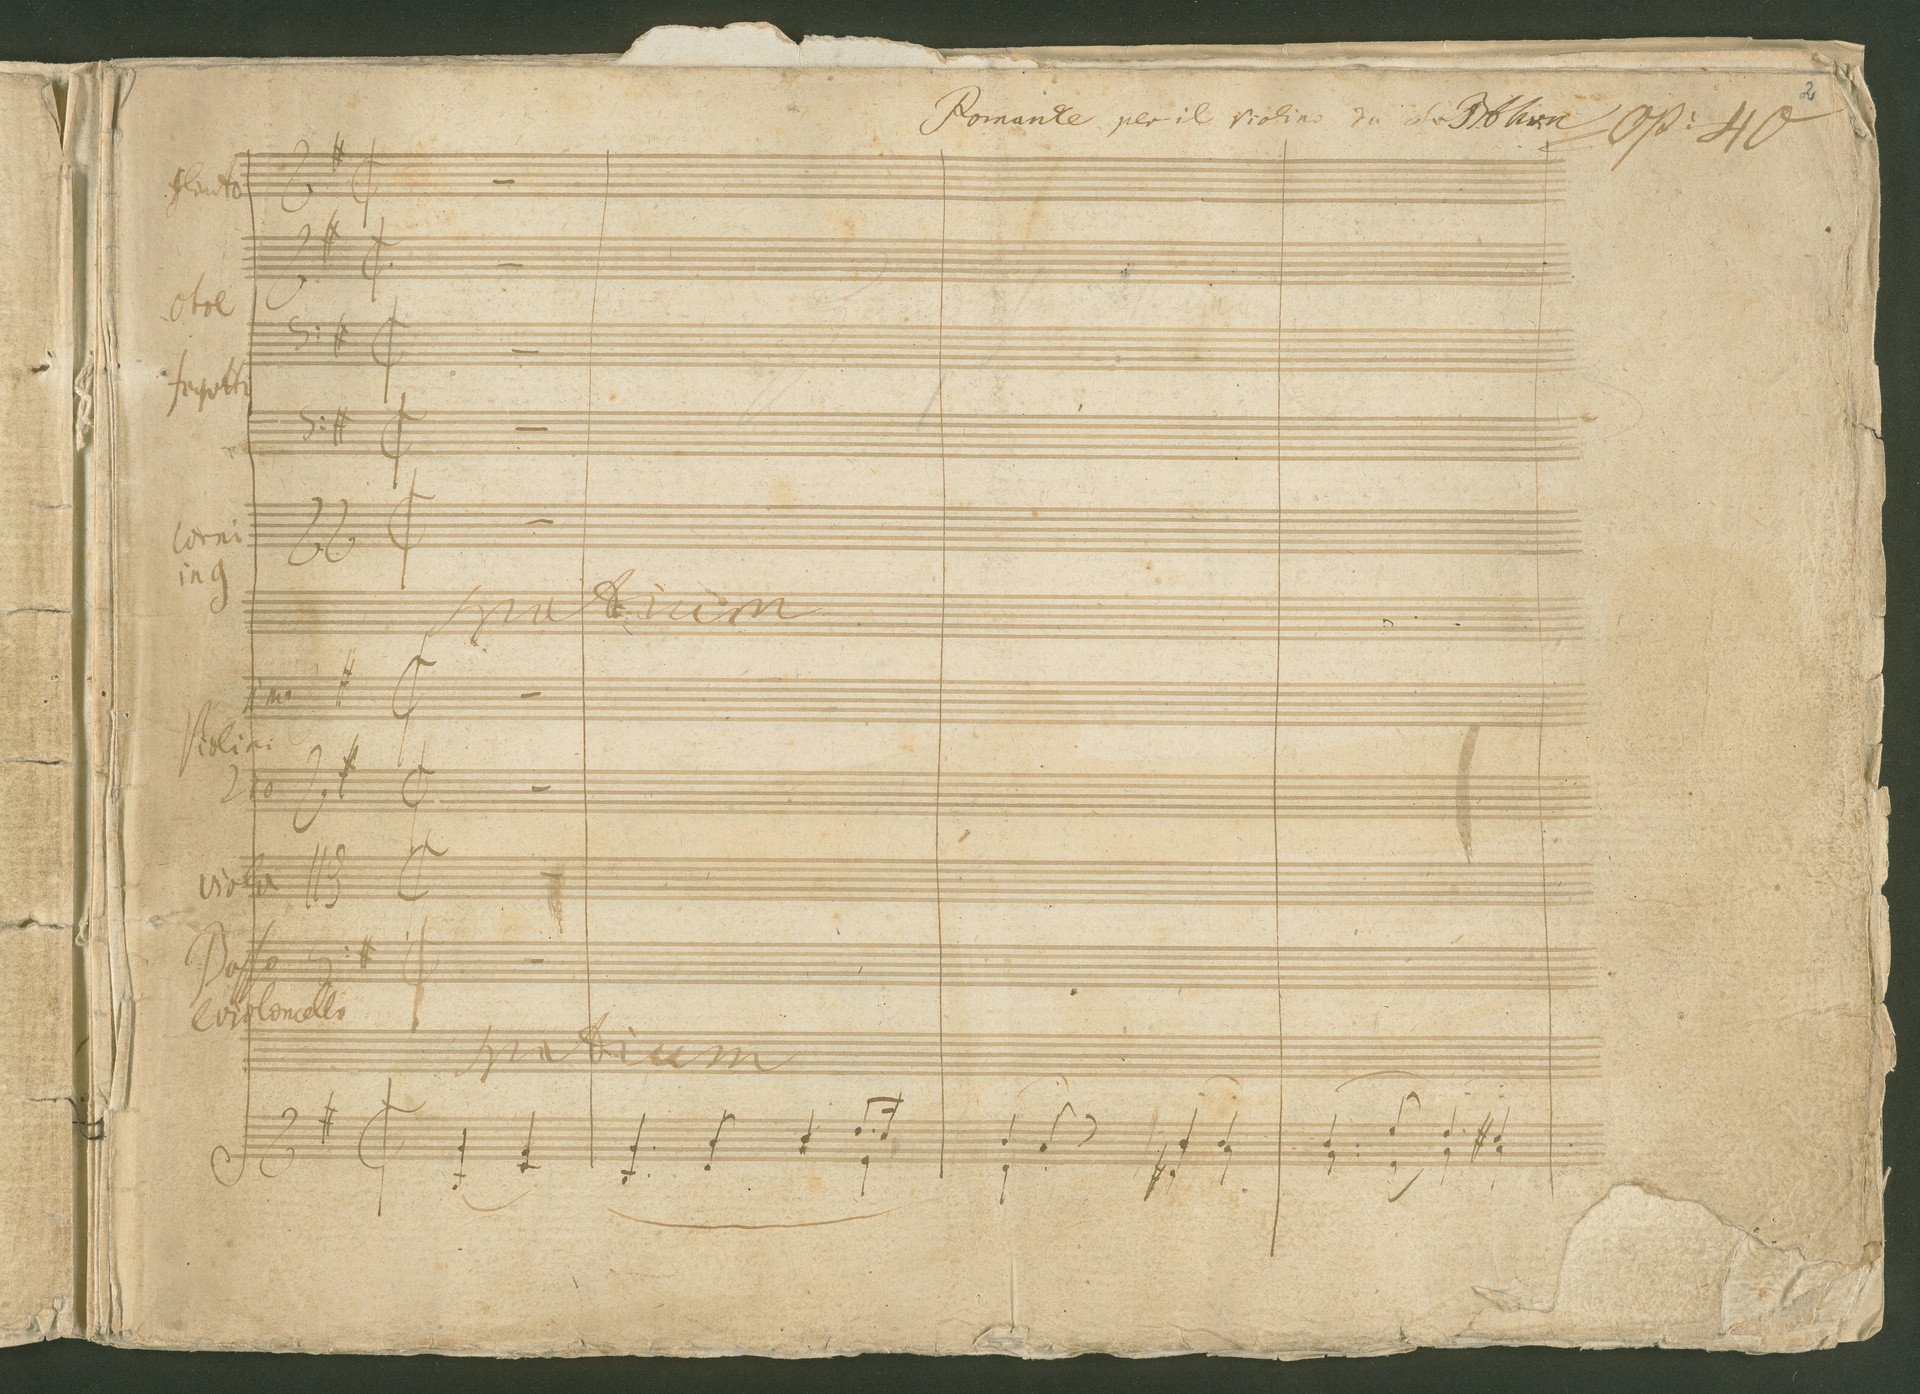 2
Romanze per il Violino da Bthvn Op: 40
flauto
oboe
fagotti
Corni
in g
spatium
1mo
Violini
2do
viola
Basso
e violoncello
spatium